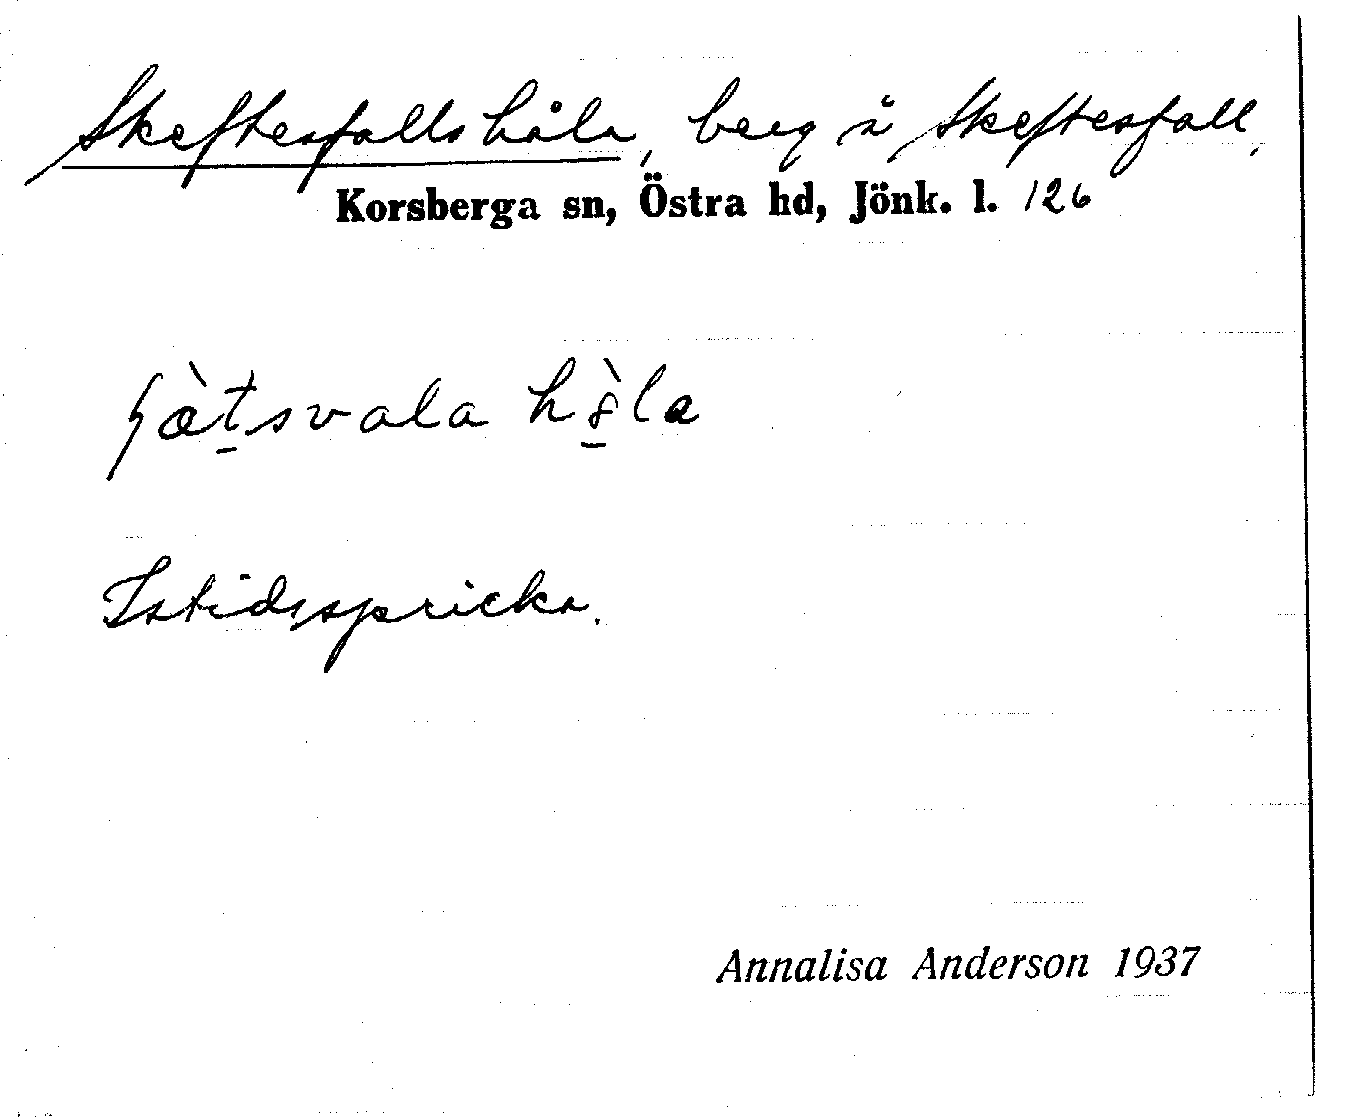 Skeftesfalls håla, berg å Skeftesfall,
Korsberga sn, Östra hd, Jönk. l. 126
Istidsspricka.
Annalisa Anderson 1937